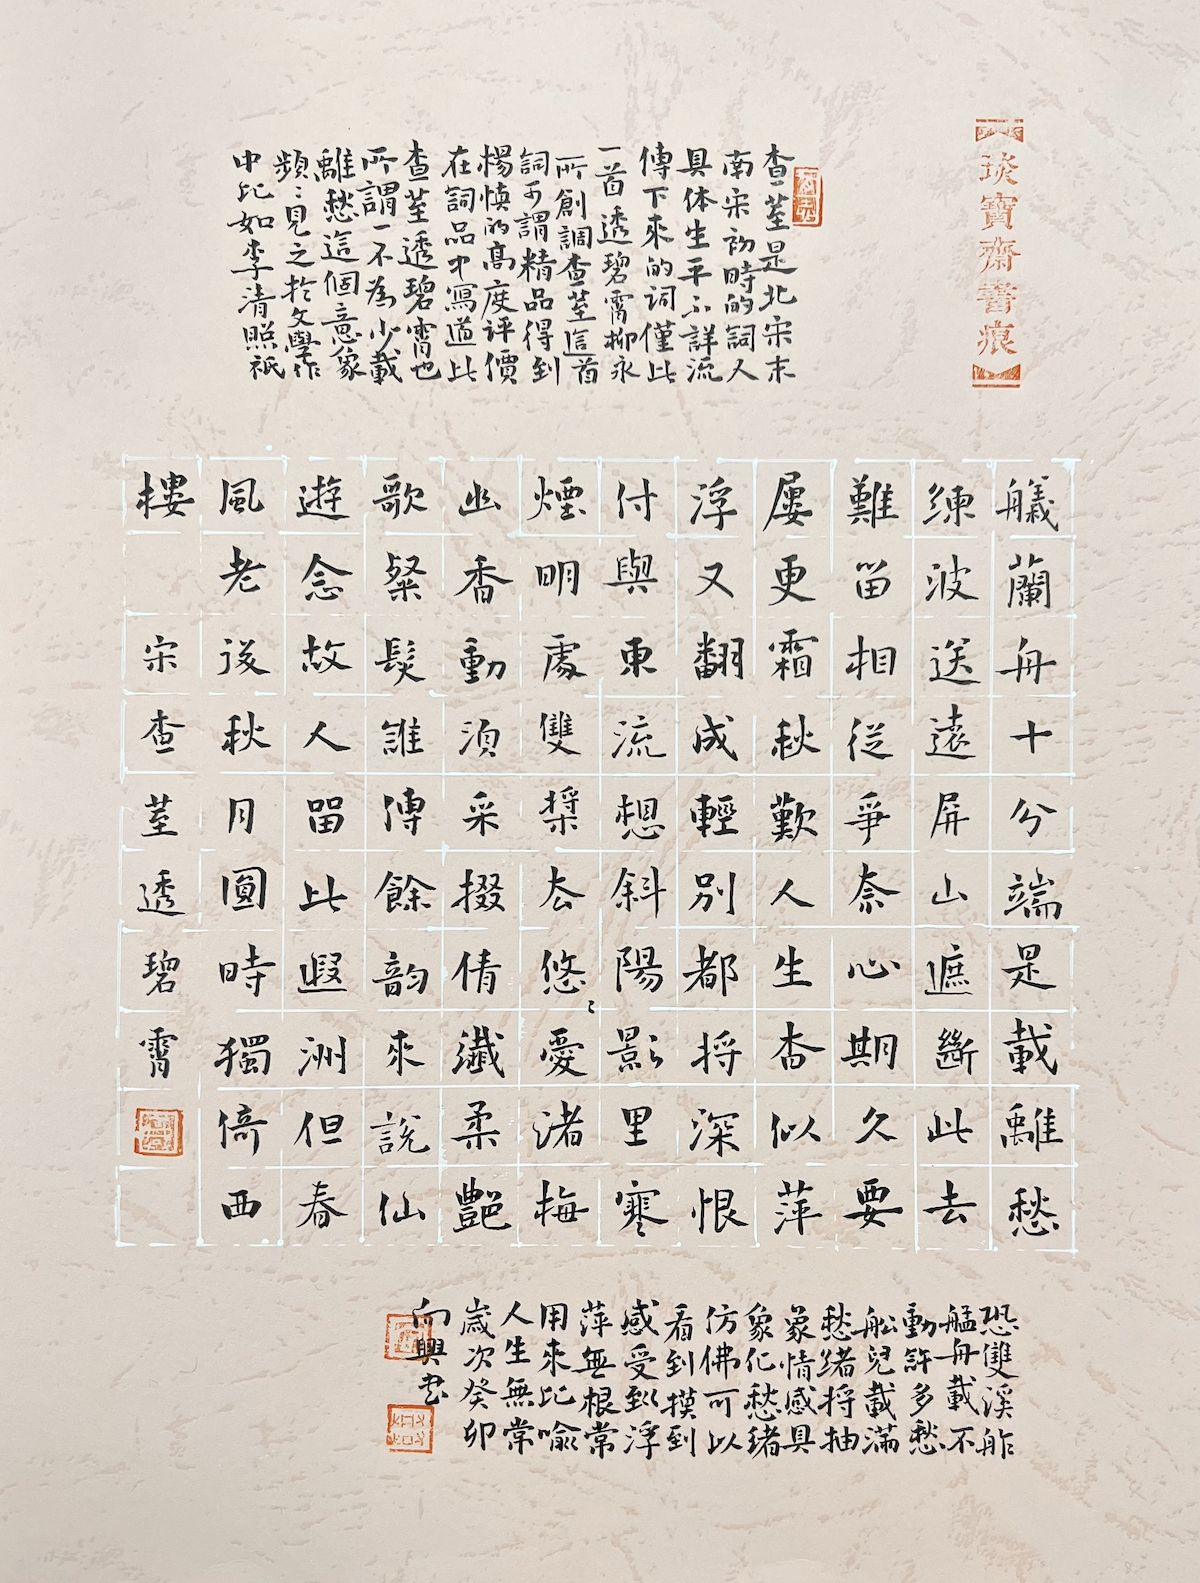 琰寶齋書痕
查荎是北宋末
南宋初時的詞人
具体生平不詳流
傳下來的詞僅此
一首透碧霄柳永
所創調查荎這首
詞可謂精品得到
楊慎的高度评價
在詞品中寫道此
查荎透碧霄也
所謂一不為少載
離愁這個意象
頻〻見之於文學作
中比如李清照衹
艤蘭舟十分端是載離愁
練波送遠屏山遮斷此去
難留相從爭奈心期久要
屢更霜秋歎人生杳似萍
浮又翻成輕別都將深恨
付與東流想斜陽影里寒
煙明處雙槳去悠〻愛渚梅
幽香動須采掇倩纖柔艷
歌粲髮誰傳餘韵來說仙
遊念故人留此遐洲但春
風老後秋月圓時獨倚西
樓 宋查荎透碧霄
恐雙溪舴
艋舟載不
動許多愁
船兒載滿
愁緒將抽
象情感具
象化愁緒
仿佛可以
看到摸到
感受到浮
萍無根常
用來比喻
人生無常
歲次癸卯
向興书